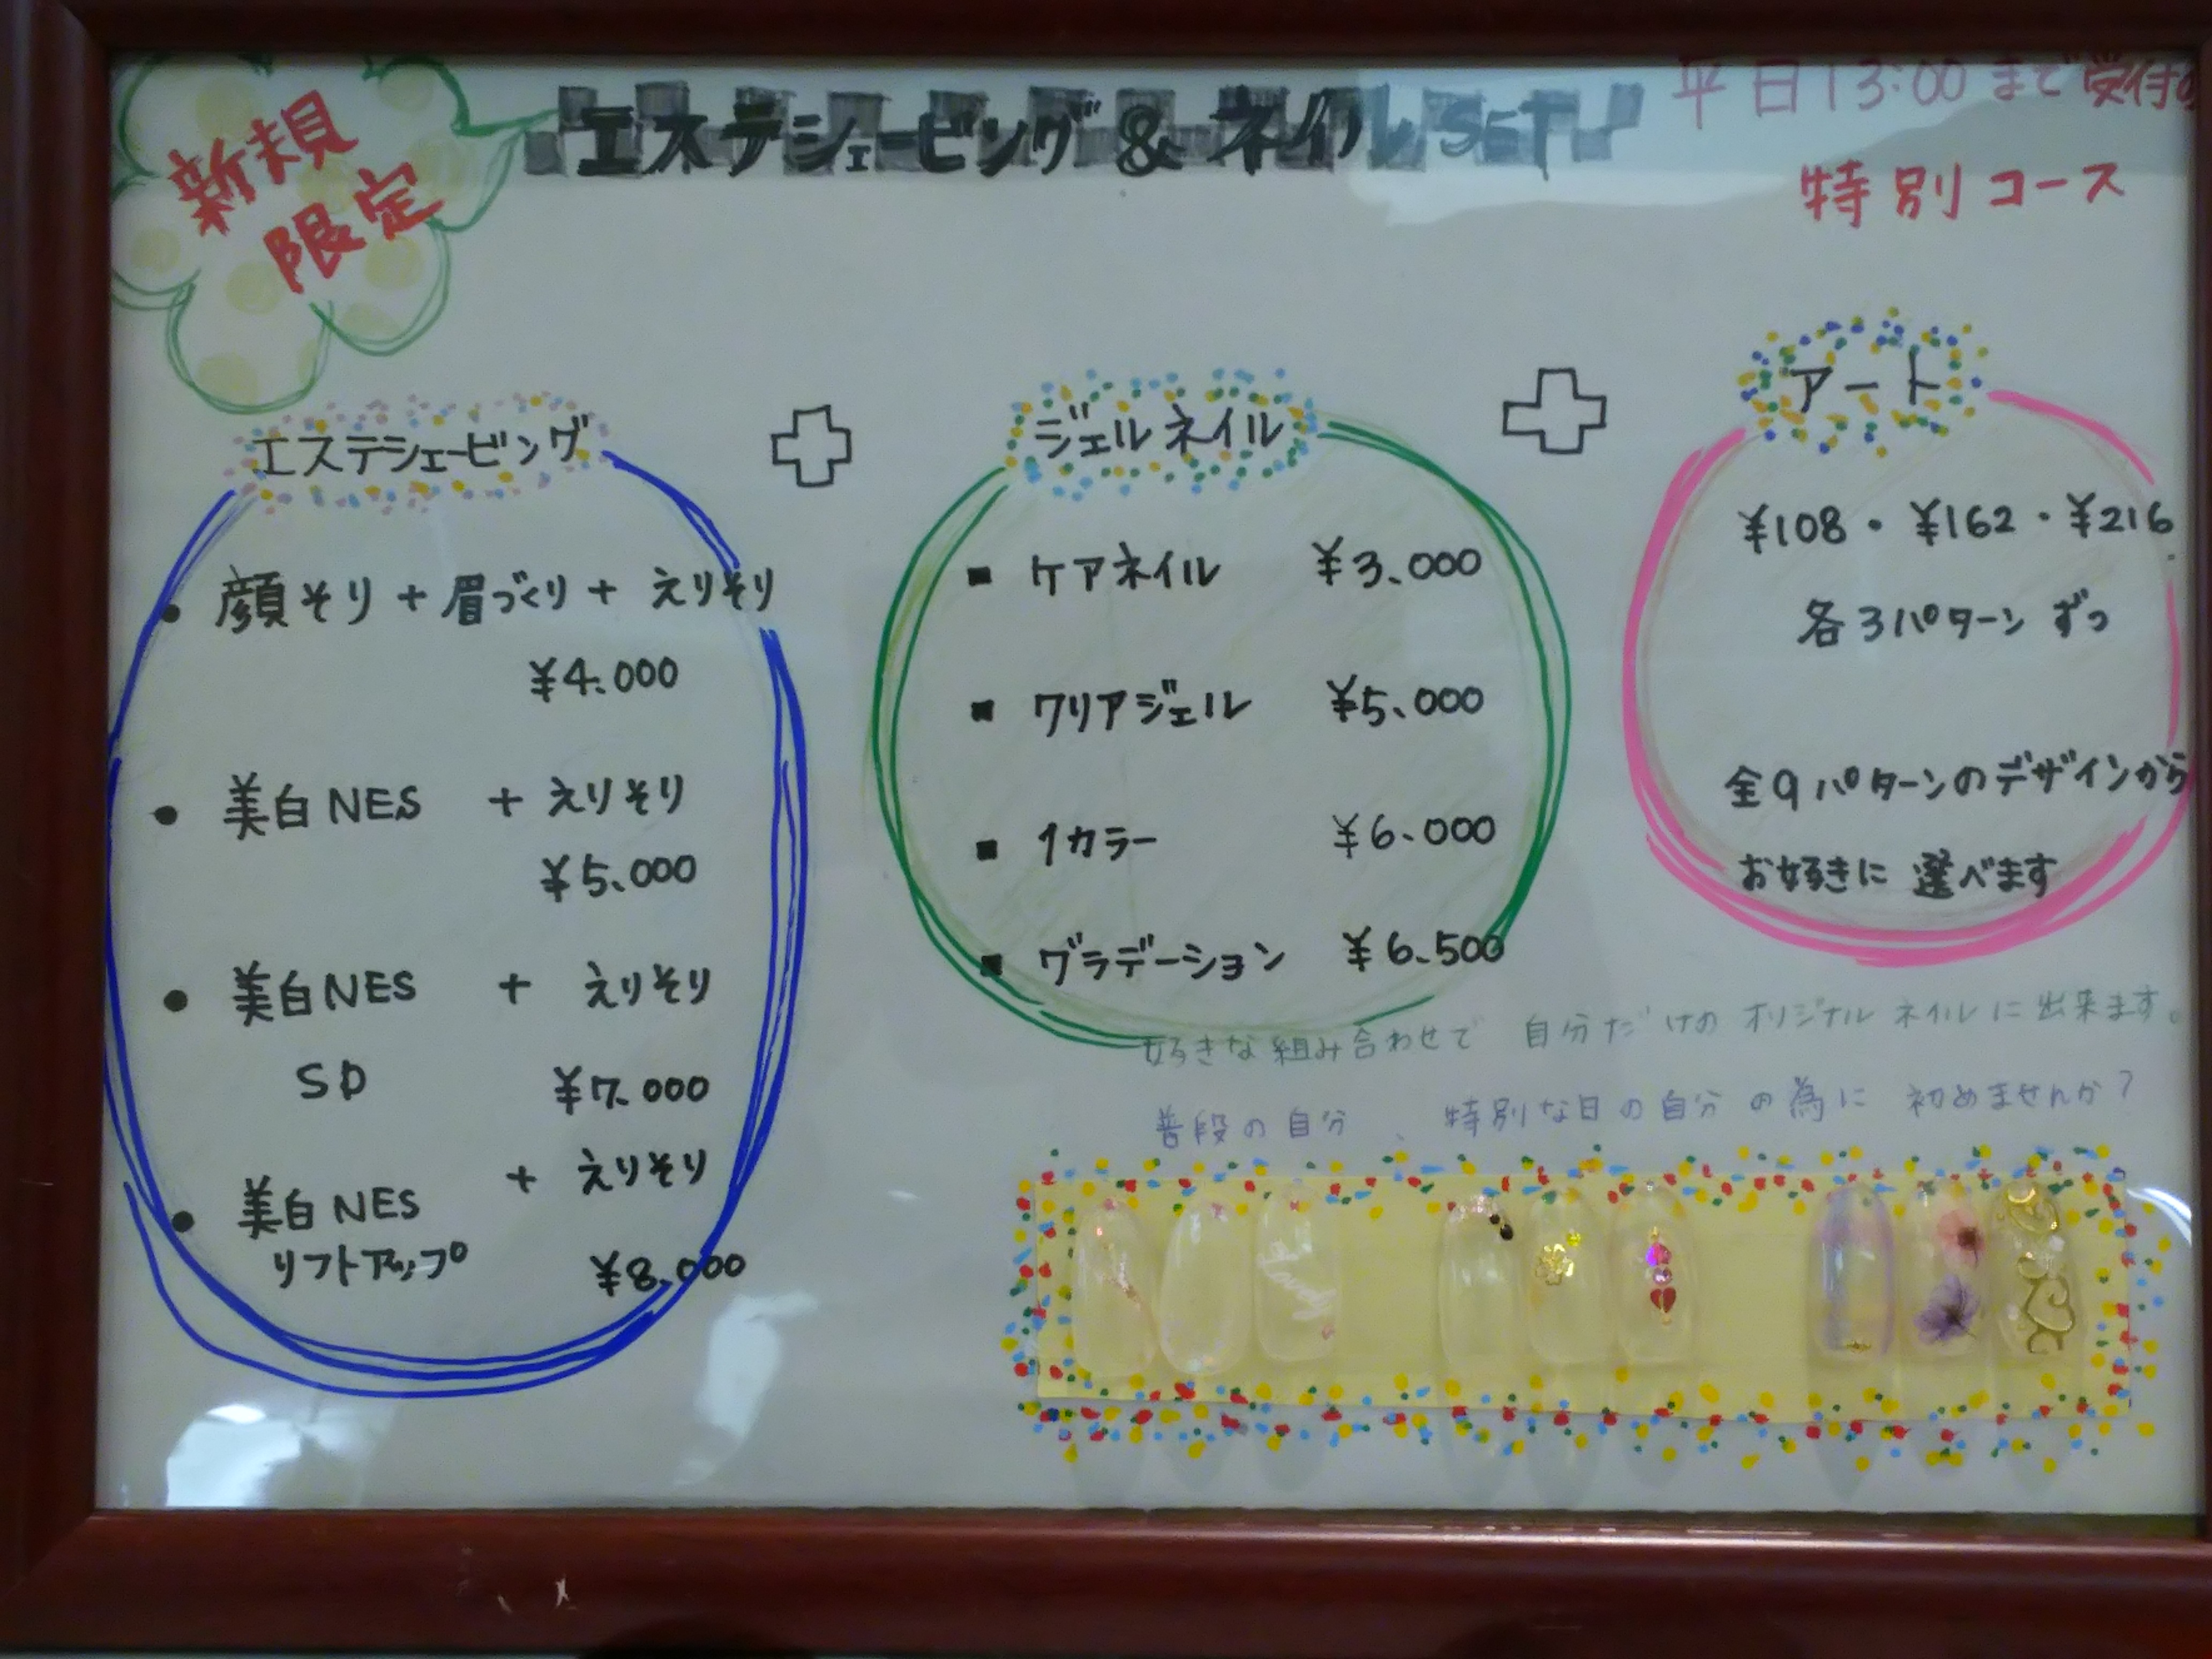 新規
限定
エステシェービング & ネイル SET!
平日13:00まで受付の
特別コース
エステシェービング
• 顔そり + 眉づくり + えりそり
¥4.000
• 美白NES + えりそり
¥5.000
• 美白NES + えりそり
SD ¥7.000
• 美白NES + えりそり
リフトアップ ¥8.000
ジェルネイル
▪ ケアネイル ¥3.000
▪ クリアジェル ¥5.000
▪ 1カラー ¥6.000
▪ グラデーション ¥6.500
アート
¥108・¥162・¥216
各3パターンずつ
全9パターンのデザインから
お好きに選べます
好きな組み合わせで 自分だけのオリジナルネイルに出来ます。
普段の自分、特別な日の自分の為に 初めませんか?